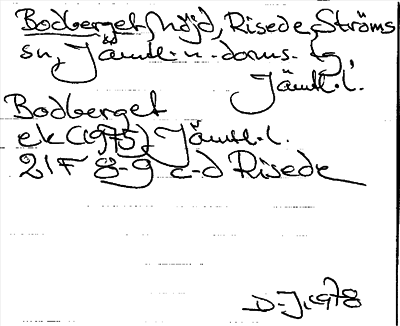 Bodberget, höjd, Risede, Ströms
sn, Jämtl. n. doms. tg,
Jämtl. l.
Bodberget
ek (1975), Jämtl. l.
21F 8-9 c-d Risede
D-J 1978